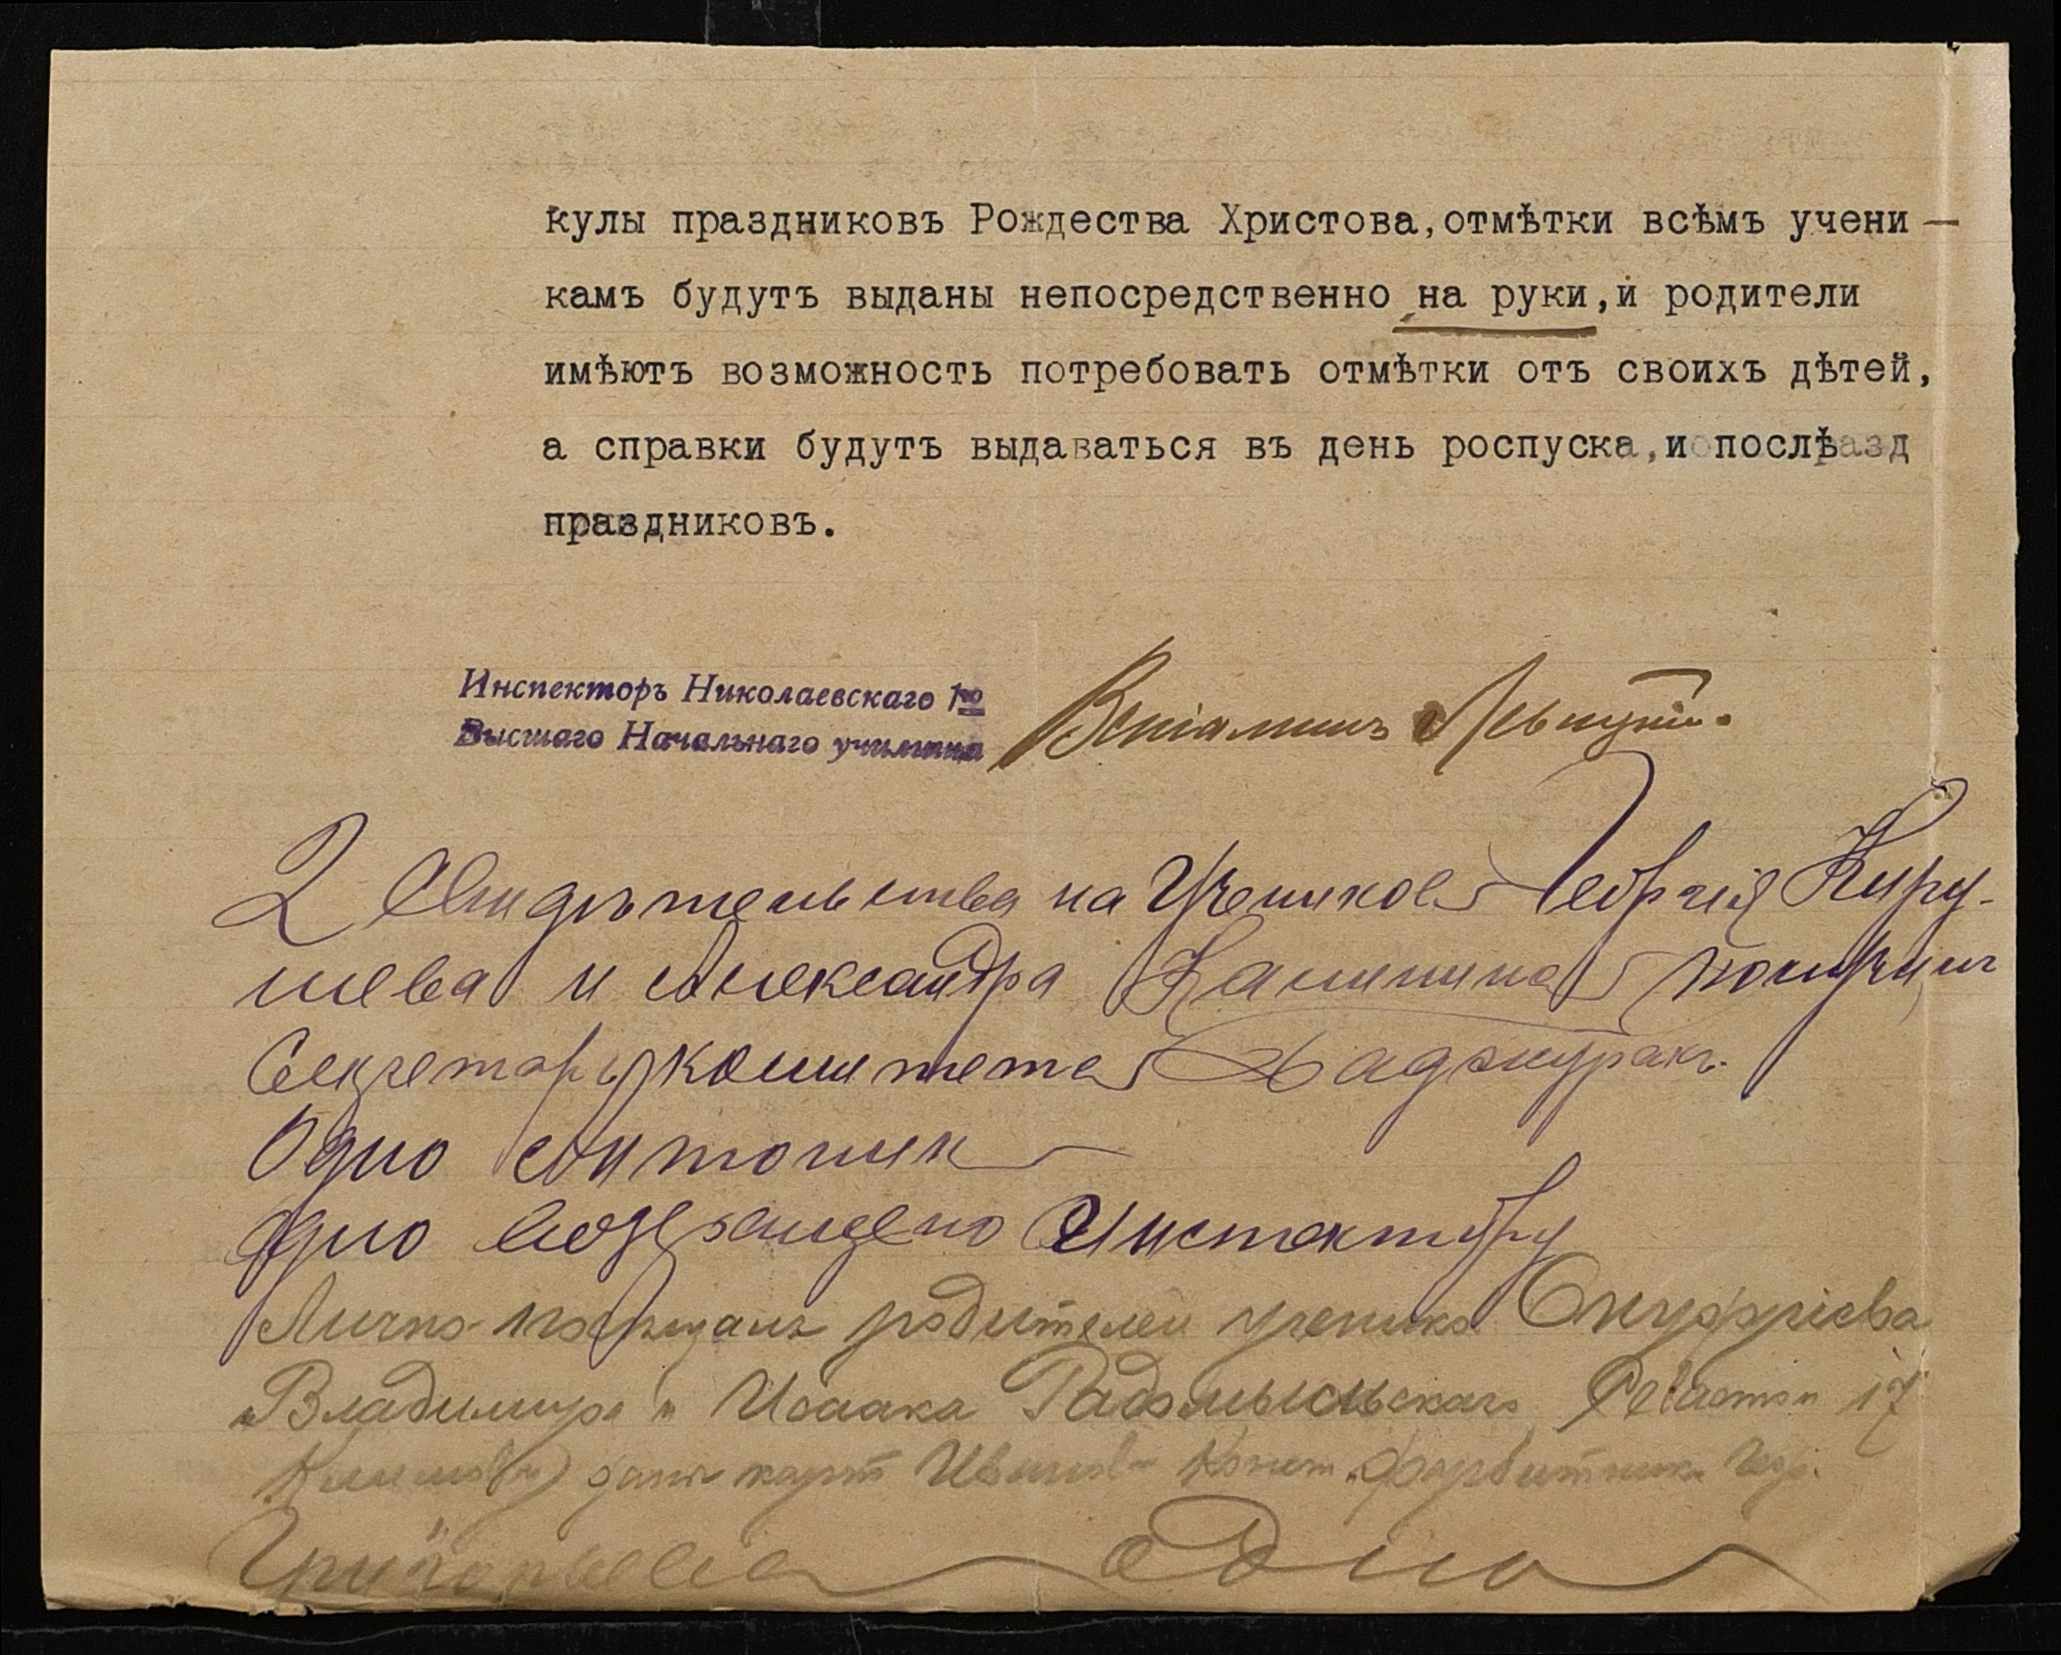 кулы праздниковъ Рождества Христова, отмѣтки всѣмъ учени —
камъ будутъ выданы непосредственно на руки, и родители
имѣютъ возможность потребовать отмѣтки отъ своихъ дѣтей,
а справки будутъ выдаваться въ день роспуска, и послѣ
праздниковъ.
Инспекторъ Николаевскаго 1го
Высшаго Начальнаго училища
Веніаминъ
2 Свидѣтельства на Учениковъ Георгія Киру-
шева и Александра Калинина получилъ
Секретарь комитета
Одно
Одно возвращено Инспектору
Лично родителей ученика Онуфріева
Владимира и Исаака Радомысльскаго 17
Григорьева одно